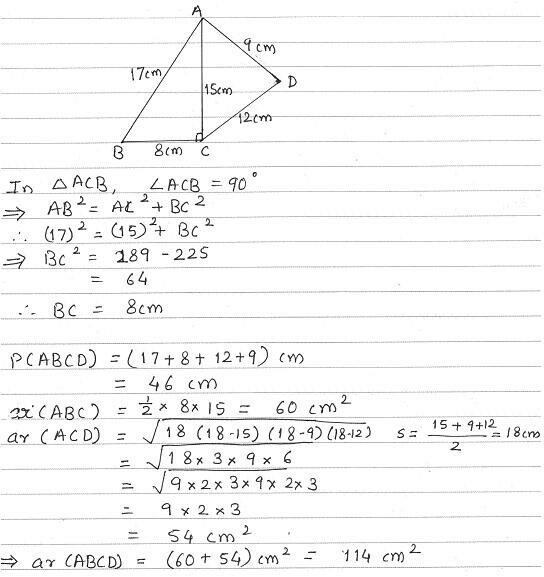 A
9cm
17cm
15cm
D
12cm
B
8cm
C
In △ACB, ∠ACB = 90°
⇒ AB² = AC² + BC²
∴ (17)² = (15)² + BC²
⇒ BC² = 289 - 225
= 64
∴ BC = 8cm
P(ABCD) = (17+8+12+9) cm
= 46 cm
ar(ABC) = 1/2 × 8 × 15 = 60 cm²
ar(ACD) = √18 (18-15) (18-9) (18-12) S = 15+9+12/2 = 18cm
= √18 × 3 × 9 × 6
= √9 × 2 × 3 × 9 × 2 × 3
= 9 × 2 × 3
= 54 cm²
⇒ ar(ABCD) = (60 + 54) cm² = 114 cm²